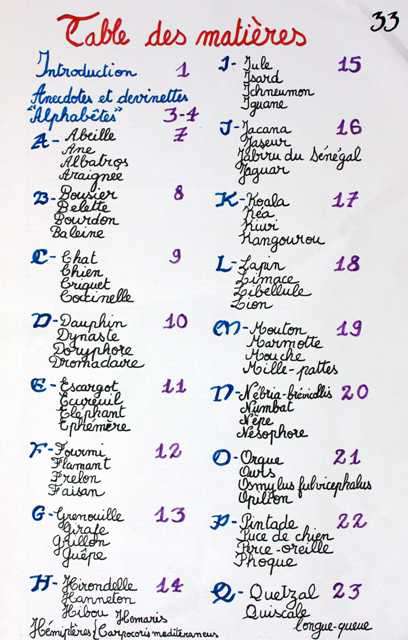 33
Table des matières
Introduction 1
Anecdotes et devinettes
"Alphabêtes" 3-4
A - Abeille 7
Ane
Albatros
Araignee
B - Bousier 8
Belette
Bourdon
Baleine
C - Chat 9
Chien
Criquet
Coccinelle
D - Dauphin 10
Dynaste
Doryphore
Dromadaire
E - Escargot 11
Ecureuil
Eléphant
Ephémère
F - Fourmi 12
Flamant
Frelon
Faisan
G - Grenouille 13
Girafe
Grillon
Guêpe
H - Hirondelle 14
Hanneton
Hibou Homaris
Hémiptères { Carpocoris mediterraneus
I - Iule 15
Isard
Ichneumon
Iguane
J - Jacana 16
Jaseur
Jabiru du Sénégal
Jaguar
K - Koala 17
Kéa
Kiwi
Kangourou
L - Lapin 18
Limace
Libellule
Lion
M - Mouton 19
Marmotte
Mouche
Mille-pattes
N - Nébria-brévicollis 20
Numbat
Nèpe
Nésophore
O - Orque 21
Ours
Osmylus fulvicephalus
Opilion
P - Pintade 22
Puce de chien
Perce-oreille
Phoque
Q - Quetzal 23
Quiscale
longue-queue